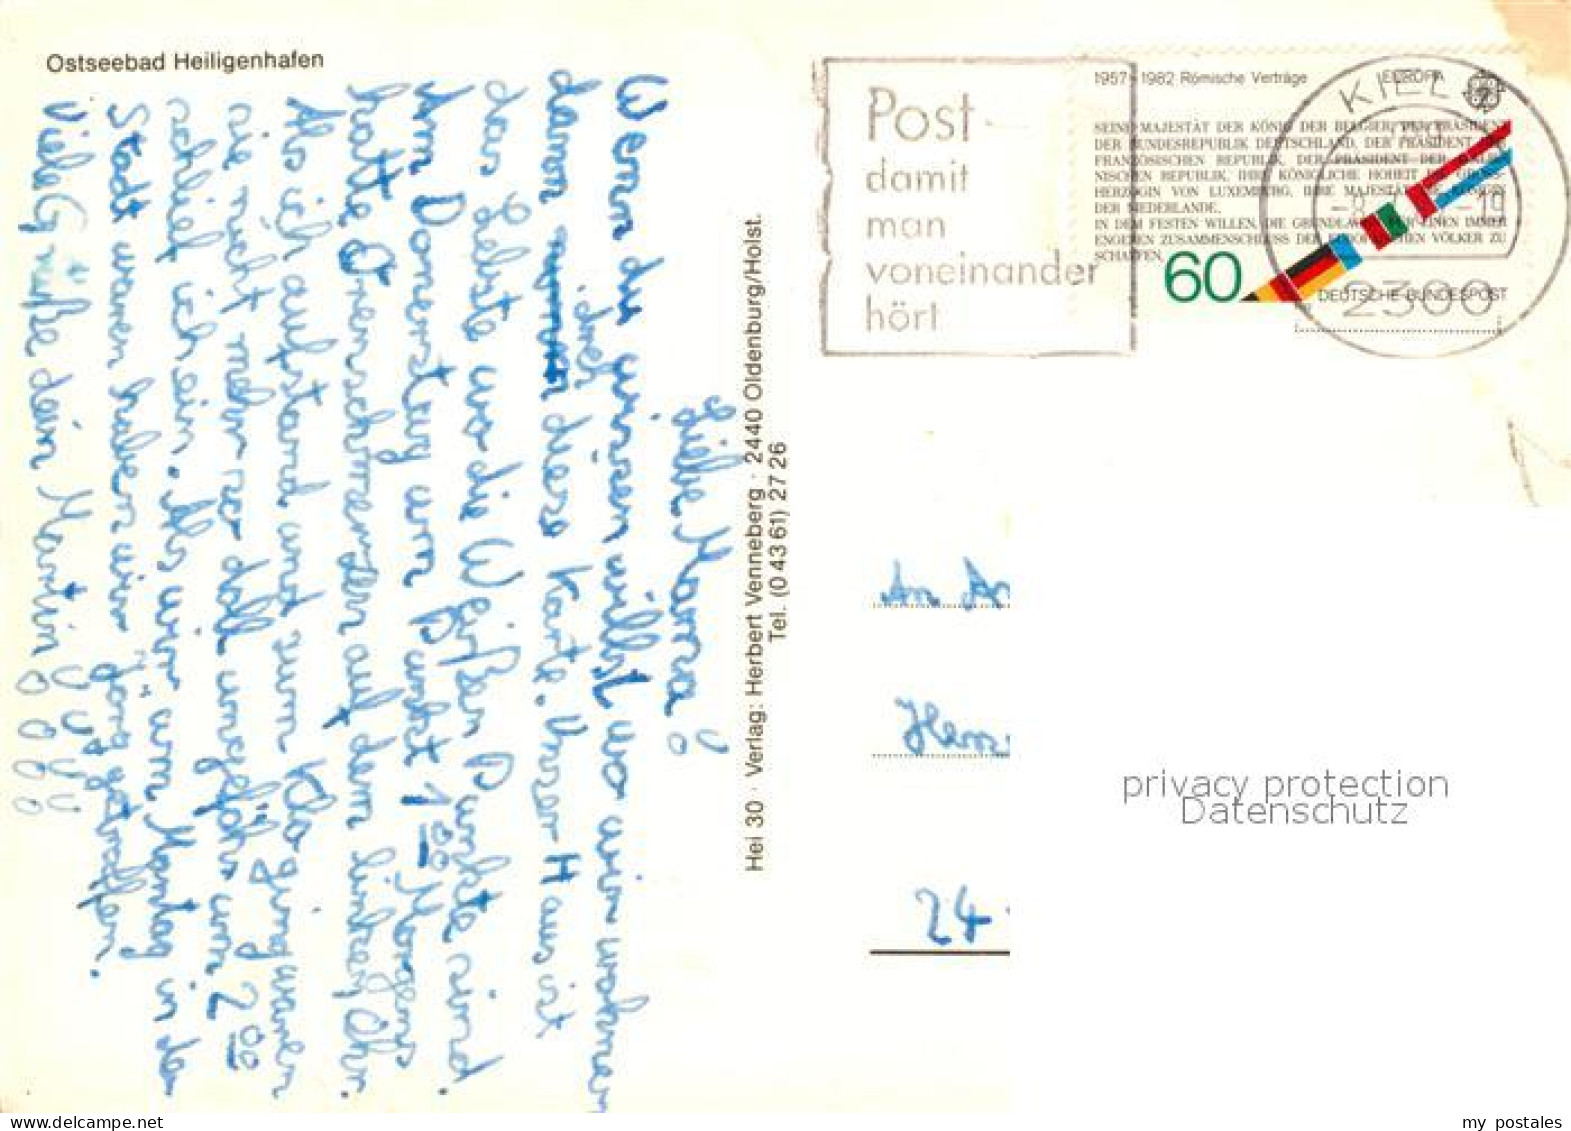 Ostseebad Heiligenhafen
Liebe Mama!
Wenn du wissen willst wo wir wohnen
dann
dreh
diese Karte. Unser Haus ist
das Letzte wo die Weißen Punkte sind.
Am Donerstag um Punkt 1 00 Morgens
hatte Ohrenschmerzen auf dem linken Ohr.
Als ich aufstand und zum Klo ging waren
sie nicht mehr so doll ungefähr um 2 00
schlief ich ein. Als wir am Montag in der
Stadt waren haben wir Jörg getroffen.
Viele Grüße dein Martin
Hei 30 · Verlag: Herbert Venneberg · 2440 Oldenburg/Holst.
Tel. (0 43 61) 27 26
Post -
damit
man
voneinander
hört
1957-1982 Römische Verträge EUROPA
SEINE MAJESTÄT DER KÖNIG DER BELGIER, DER PRÄSIDENT
DER BUNDESREPUBLIK DEUTSCHLAND, DER PRÄSIDENT DER
FRANZÖSISCHEN REPUBLIK, DER PRÄSIDENT DER ITALIE-
NISCHEN REPUBLIK, IHRE KÖNIGLICHE HOHEIT DIE GROSS-
HERZOGIN VON LUXEMBURG, IHRE MAJESTÄT DIE KÖNIGIN
DER NIEDERLANDE,
IN DEM FESTEN WILLEN, DIE GRUNDLAGEN FÜR EINEN IMMER
ENGEREN ZUSAMMENSCHLUSS DER EUROPÄISCHEN VÖLKER ZU
SCHAFFEN,
60
DEUTSCHE BUNDESPOST
KIEL
2300
An
24
privacy protection
Datenschutz
www.delcampe.net
my_postales